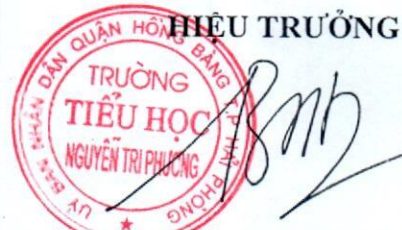 HIỆU TRƯỞNG
UỶ BAN NHÂN DÂN QUẬN HỒNG BÀNG T.P HẢI PHÒNG
TRƯỜNG
TIỂU HỌC
NGUYỄN TRI PHƯƠNG